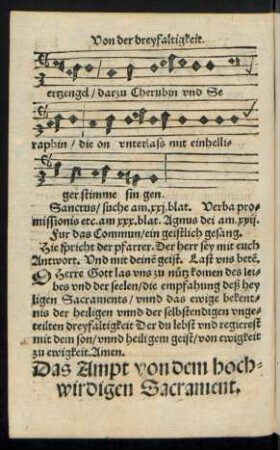 Von der dreyfaltigkeit.
ertzengel / darzu Cherubin vnd Se
raphin / die on vnterlass mit einhelli-
ger stimme sin gen.
Sanctus / suche am.xxj.blat. Verba pro-
missionis etc.am xxx.blat. Agnus dei am.xxij.
Fur das Commun / ein geistlich gesang.
Hie spricht der pfarrer. Der herr sey mit euch
Antwort. Vnd mit deinē geist. Last vns betē.
O Herre Gott las vns zu nütz komen des lei-
bes vnd der seelen / die empfahung deß hey
ligen Sacraments / vnnd das ewige bekent-
nis der heiligen vnnd der selbstendigen vnge-
teilten dreyfaltigkeit Der du lebst vnd regierest
mit dem son / vnnd heiligem geist / von ewigkeit
zu ewigkeit. Amen.
Das Ampt von dem hoch-
wirdigen Sacrament.